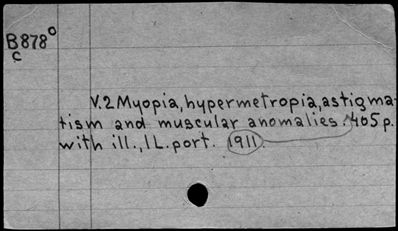 B878°
c
V.2 Myopia, hypermetropia, astigma-
tism and muscular anomalies. 405 p.
with ill., 1 L. port. 1911